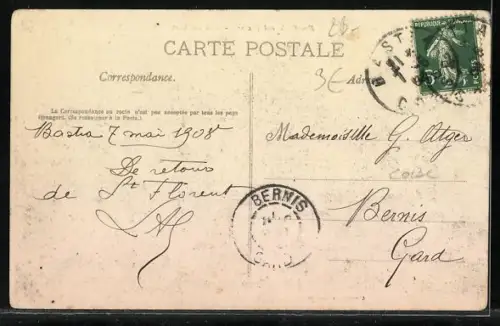 CARTE POSTALE
3€
Correspondance.
La Correspondance au recto n'est pas acceptée par tous les pays
étrangers. (Se renseigner à la Poste.)
Bastia 7 mai 1908
De retour
de St Florent
Mademoiselle G. Atger
Bernis
Gard
BERNIS
GARD